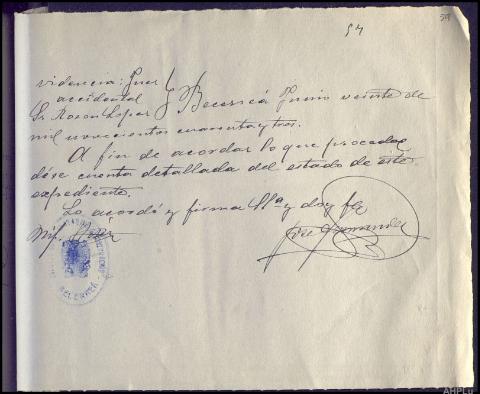 54
59
videncia: Juez
accidental
Sr. Rosón López } Becerreá Junio veinte de
mil novecientos cuarenta y tres.
A fin de acordar lo que proceda,
dése cuenta detallada del estado de este
expediente.
Lo acordó y firma Sª y doy fe
BECERREÁ
AHPLu